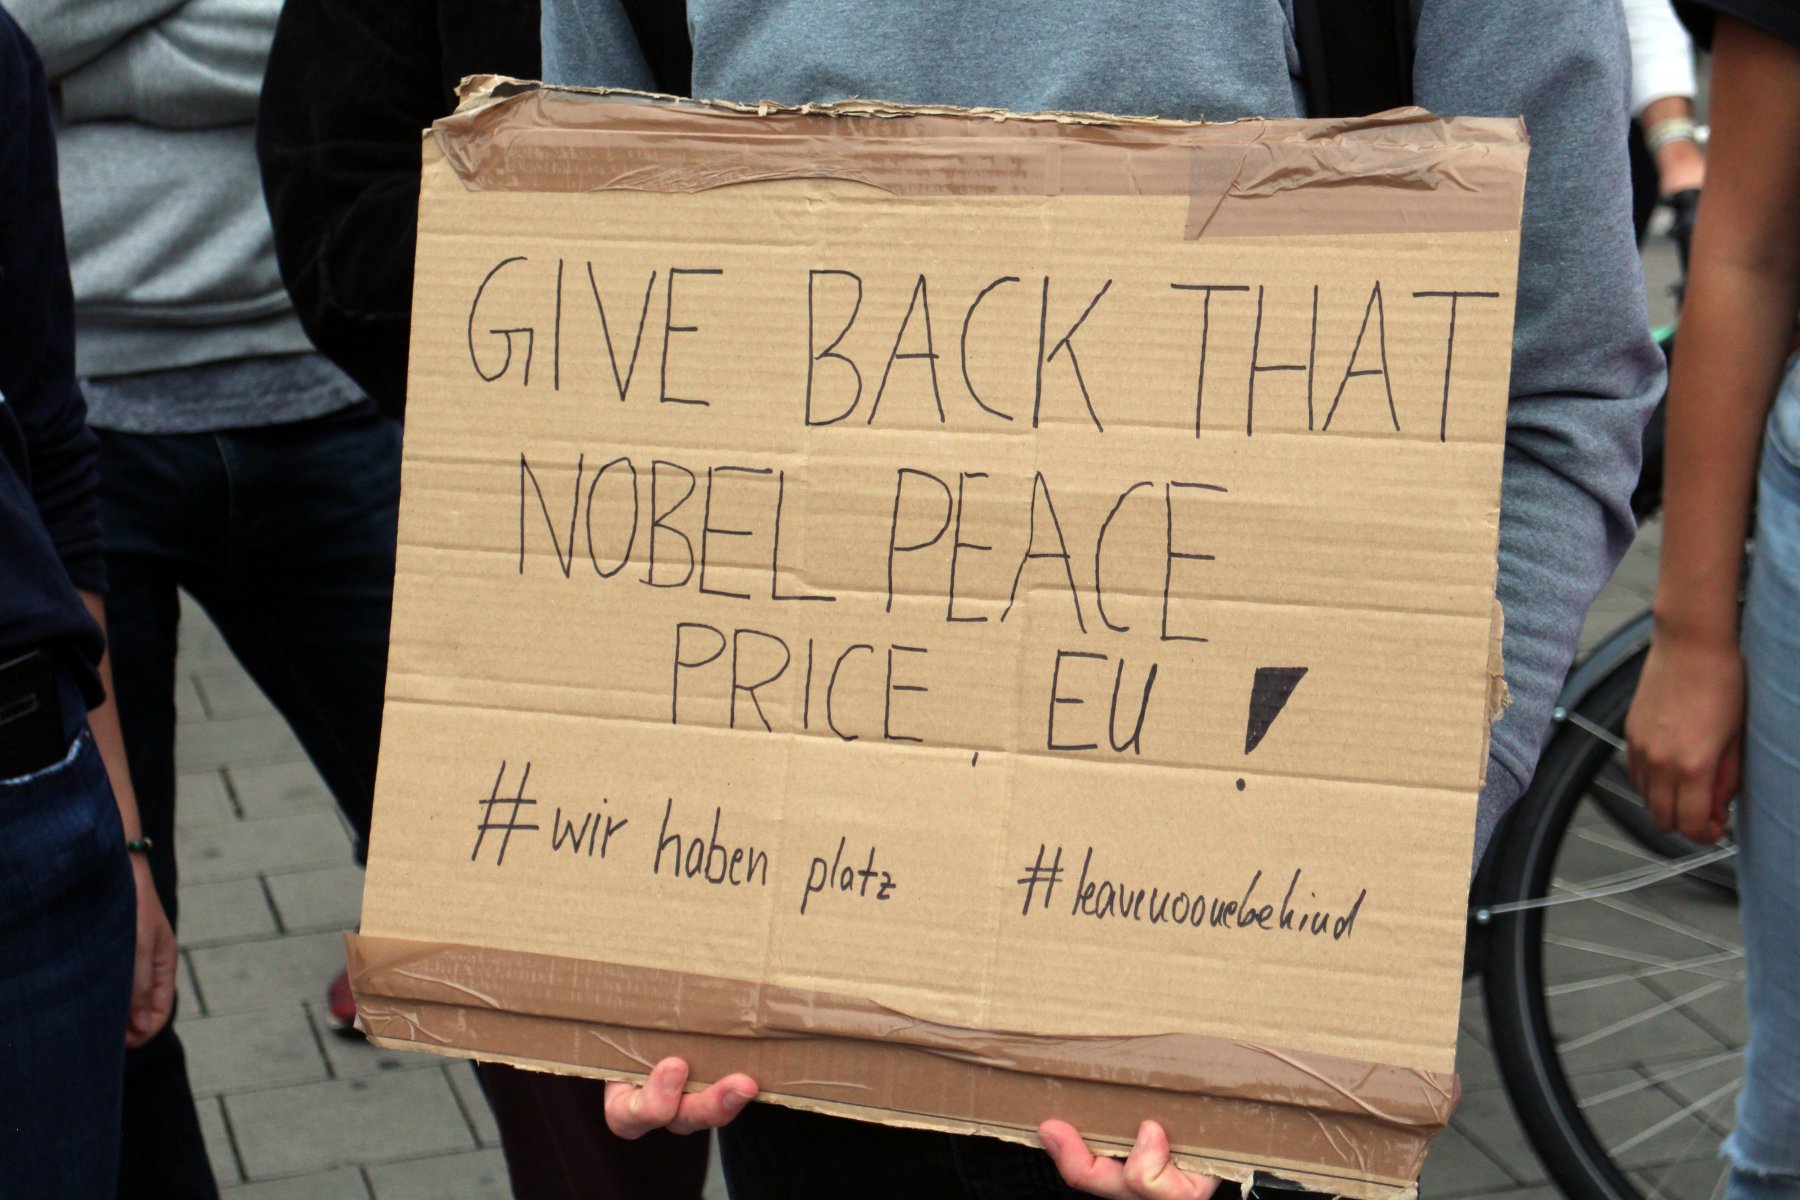 GIVE BACK THAT
NOBEL PEACE
PRICE, EU!
#wir haben platz #leavenoonebehind